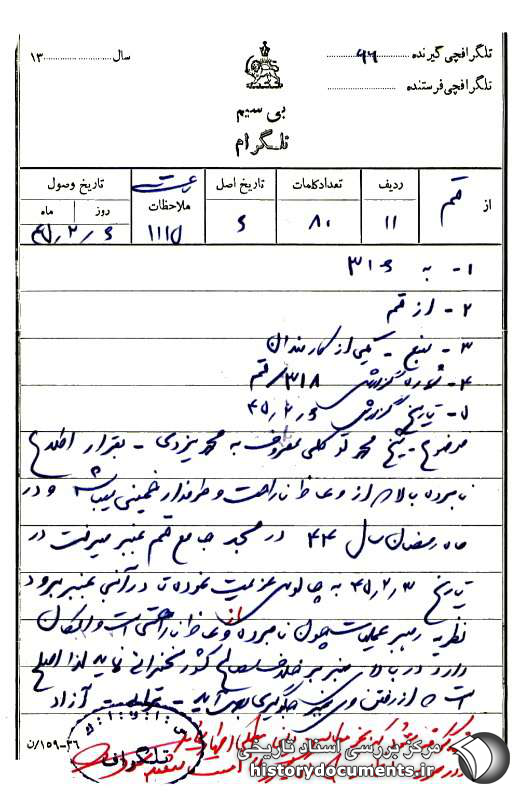 تلگرافچی گیرنده ۶۶
سال ۱۳
تلگرافچی فرستنده
بی سیم
تلگرام
از قم
ردیف ۱۱
تعداد کلمات ۸۰
تاریخ اصل ۶
ملاحظات ۱۱۱۵
تاریخ وصول
روز ماه
۴۵/۲/۶
۱- به ۳۱۶
۲- از قم
۳- منبع - یکی از کارمندان
۴- شماره گزارش ۳۱۸/قم
۵- تاریخ گزارش ۴۵/۲/۶
موضوع - شیخ محمد توکلی معروف به محمد یزدی - بقرار اطلاع
نامبرده بالا از وعاظ ناراحت و طرفدار خمینی میباشد و در
ماه رمضان سال ۴۴ در مسجد جامع قم منبر میرفت در
تاریخ ۴۵/۲/۳ به چالوس عزیمت نموده تا در آنجا بمنبر برود
نظریه رهبر عملیات چون نامبرده از وعاظ ناراحتی است و امکان
دارد در بالای منبر بر خلاف مصالح کشور سخنرانی نماید لذا اصلح
است از رفتن وی بمنبر جلوگیری بعمل آید - آزاد
تلگراف
۳۶-۱۵۹/ن
مرکز بررسی اسناد تاریخی
historydocuments.ir